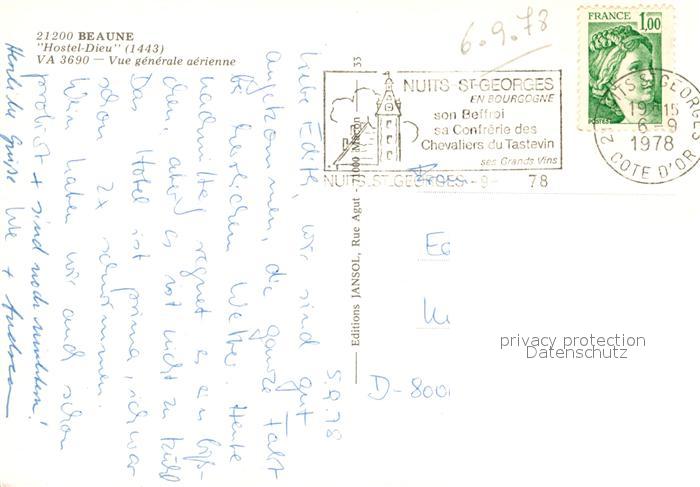 21200 BEAUNE
"Hostel-Dieu" (1443)
VA 3690 — Vue générale aérienne
6.9.78
FRANCE 1,00
POSTES
NUITS ST-GEORGES
EN BOURGOGNE
son Beffroi
sa Confrérie des
Chevaliers du Tastevin
ses Grands Vins
NUITS-ST-GEORGES -9- 78
21 NUITS ST GEORGES
19H15
6-9
1978
COTE D'OR
— Editions JANSOL, Rue Agut - 71000 Mâcon 33
5.9.78
Liebe Edith, wir sind gut
angekommen, die ganze Fahrt
bei herrlichem Wetter. Heute
nachmittag regnet es ein biß-
chen, aber es ist nicht zu kühl
Das Hotel ist prima, ich war
schon 2x schwimmen.
Wein haben wir auch schon
probiert + sind noch nüchtern!
Herzliche Grüße Ute +
Frau
D-800
privacy protection
Datenschutz